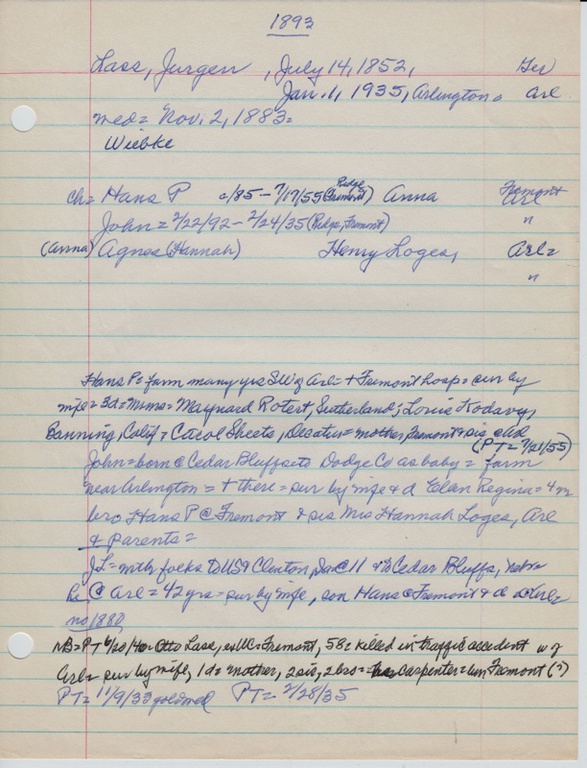 1893
Lass, Jurgen , July 14, 1852, Ger
Jan. 1, 1935, Arlington = Arl
med = Nov. 2, 1883 =
Wiebke
ch = Hans P /85 - 7/17/55 (Ridge, Fremont) Anna Fremont Arl
John = 2/22/92 - 2/24/35 (Ridge, Fremont) "
(Anna) Agnes (Hannah) Henry Loges, Arl =
"
Hans P = farm many yrs SW of Arl = + Fremont hosp = sur by
wife = 3d = Mrms = Maynard Rotert, Sutherland; Louie
Banning, Calif + Carol Sheets, Decatur = mother, Fremont + sis @ Arl
(PT = 7/21/55)
John = born @ Cedar Bluffs to Dodge Co as baby = farm
near Arlington = + there = sur by wife & d Elan Regina = 4 m
bro Hans P @ Fremont & sis Mrs Hannah Loges, Arl
& parents =
JL = with focks to US & Clinton, @ 11 & to Cedar Bluffs,
@ Arl = 42 yrs = sur by wife, son Hans @ Fremont & d @ Arl =
no 1880
NB = PT 6/20/40 = Otto Lass, Fremont, 58 = killed in traffic accident w of
Arl = sur by wife, 1 d = mother, 2 sis, 2 bros = carpenter = Fremont (?)
PT = 11/9/33 gold wed PT = 2/28/35